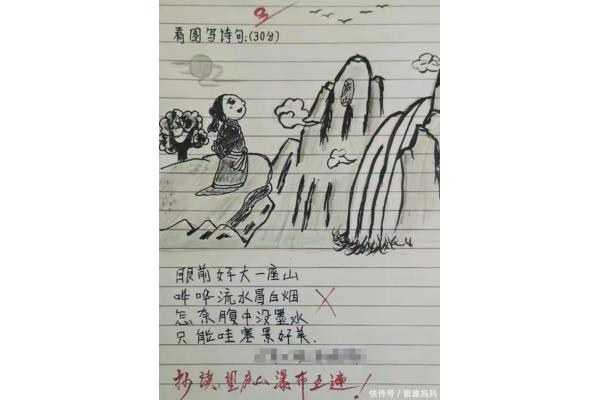 看图写诗句:(30分)
眼前好大一座山
哗哗流水冒白烟
怎奈腹中没墨水
只能哇塞景好美.
抄读:望庐山瀑布五遍!
快传号/窦雅妈妈